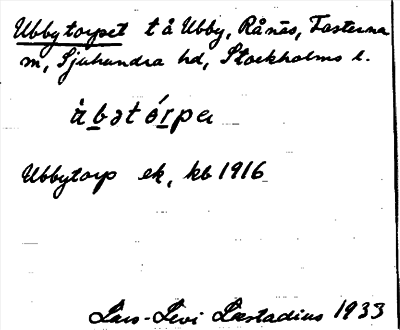 Ubbytorpet t å Ubby, Rånäs, Fasterna
sn, Sjuhundra hd, Stockholms l.
ùbət órpa
Ubbytorp ek, kb 1916
Lars-Levi Læstadius 1933